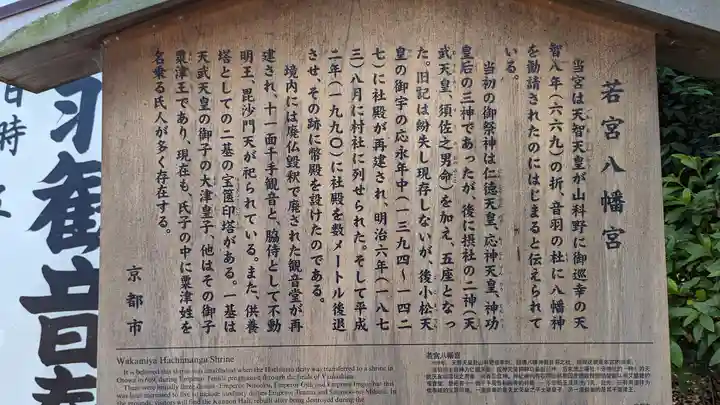 若宮八幡宮
当宮は天智天皇が山科野に御巡幸の天
智八年(六六九)の折、音羽の杜に八幡神
を勧請されたのにはじまると伝えられて
いる。
当初の御祭神は仁徳天皇、応神天皇、神功
皇后の三神であったが、後に摂社の二神(天
武天皇、須佐之男命)を加え、五座となっ
た。旧記は紛失し現存しないが、後小松天
皇の御宇の応永年中(一三九四〜一四二
七)に社殿が再建され、明治六年(一八七
三)八月に村社に列せられた。そして平成
二年(一九九〇)に社殿を数メートル後退
させ、その跡に幣殿を設けたのである。
境内には廃仏毀釈で廃された観音堂が再
建され、十一面千手観音と、脇侍として不動
明王、毘沙門天が祀られている。また、供養
塔としての二基の宝篋印塔がある。一基は
天武天皇の御子の大津皇子、他はその御子
粟津王であり、現在も、氏子の中に粟津姓を
名乗る氏人が多く存在する。
京都市
Wakamiya Hachimangu Shrine
It is believed that this shrine was established when the Hachiman deity was transferred to a shrine in
Otowa in 669, during Emperor Tenchi's progression through the fields of Yamashina.
若宮八幡宮
日時
観音